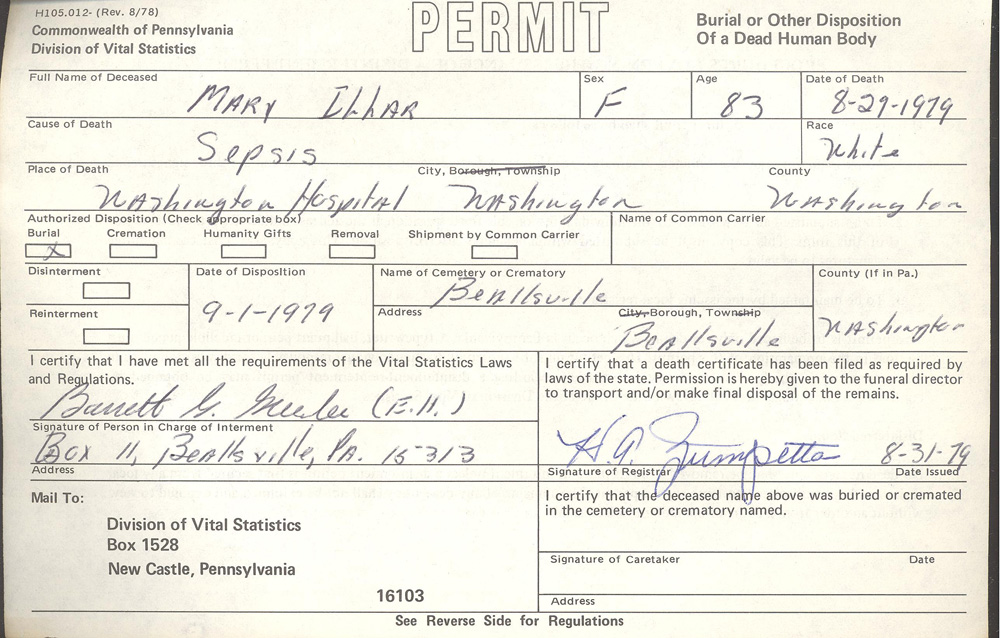 H105.012- (Rev. 8/78)
Commonwealth of Pennsylvania
Division of Vital Statistics
PERMIT
Burial or Other Disposition
Of a Dead Human Body
Full Name of Deceased
MARY ILLAR
Sex
F
Age
83
Date of Death
8-29-1979
Cause of Death
Sepsis
Race
White
Place of Death
Washington Hospital
City, Borough, Township
Washington
County
Washington
Authorized Disposition (Check appropriate box)
Burial
X
Cremation
Humanity Gifts
Removal
Shipment by Common Carrier
Name of Common Carrier
Disinterment
Reinterment
Date of Disposition
9-1-1979
Name of Cemetery or Crematory
Beallsville
Address
City, Borough, Township
Beallsville
County (If in Pa.)
Washington
I certify that I have met all the requirements of the Vital Statistics Laws
and Regulations.
Barrett G. (E.H.)
Signature of Person in Charge of Interment
Box 11, Beallsville, PA. 15313
Address
I certify that a death certificate has been filed as required by
laws of the state. Permission is hereby given to the funeral director
to transport and/or make final disposal of the remains.
H.A. Zumpetta 8-31-79
Signature of Registrar
Date Issued
Mail To:
Division of Vital Statistics
Box 1528
New Castle, Pennsylvania
16103
I certify that the deceased name above was buried or cremated
in the cemetery or crematory named.
Signature of Caretaker
Date
Address
See Reverse Side for Regulations